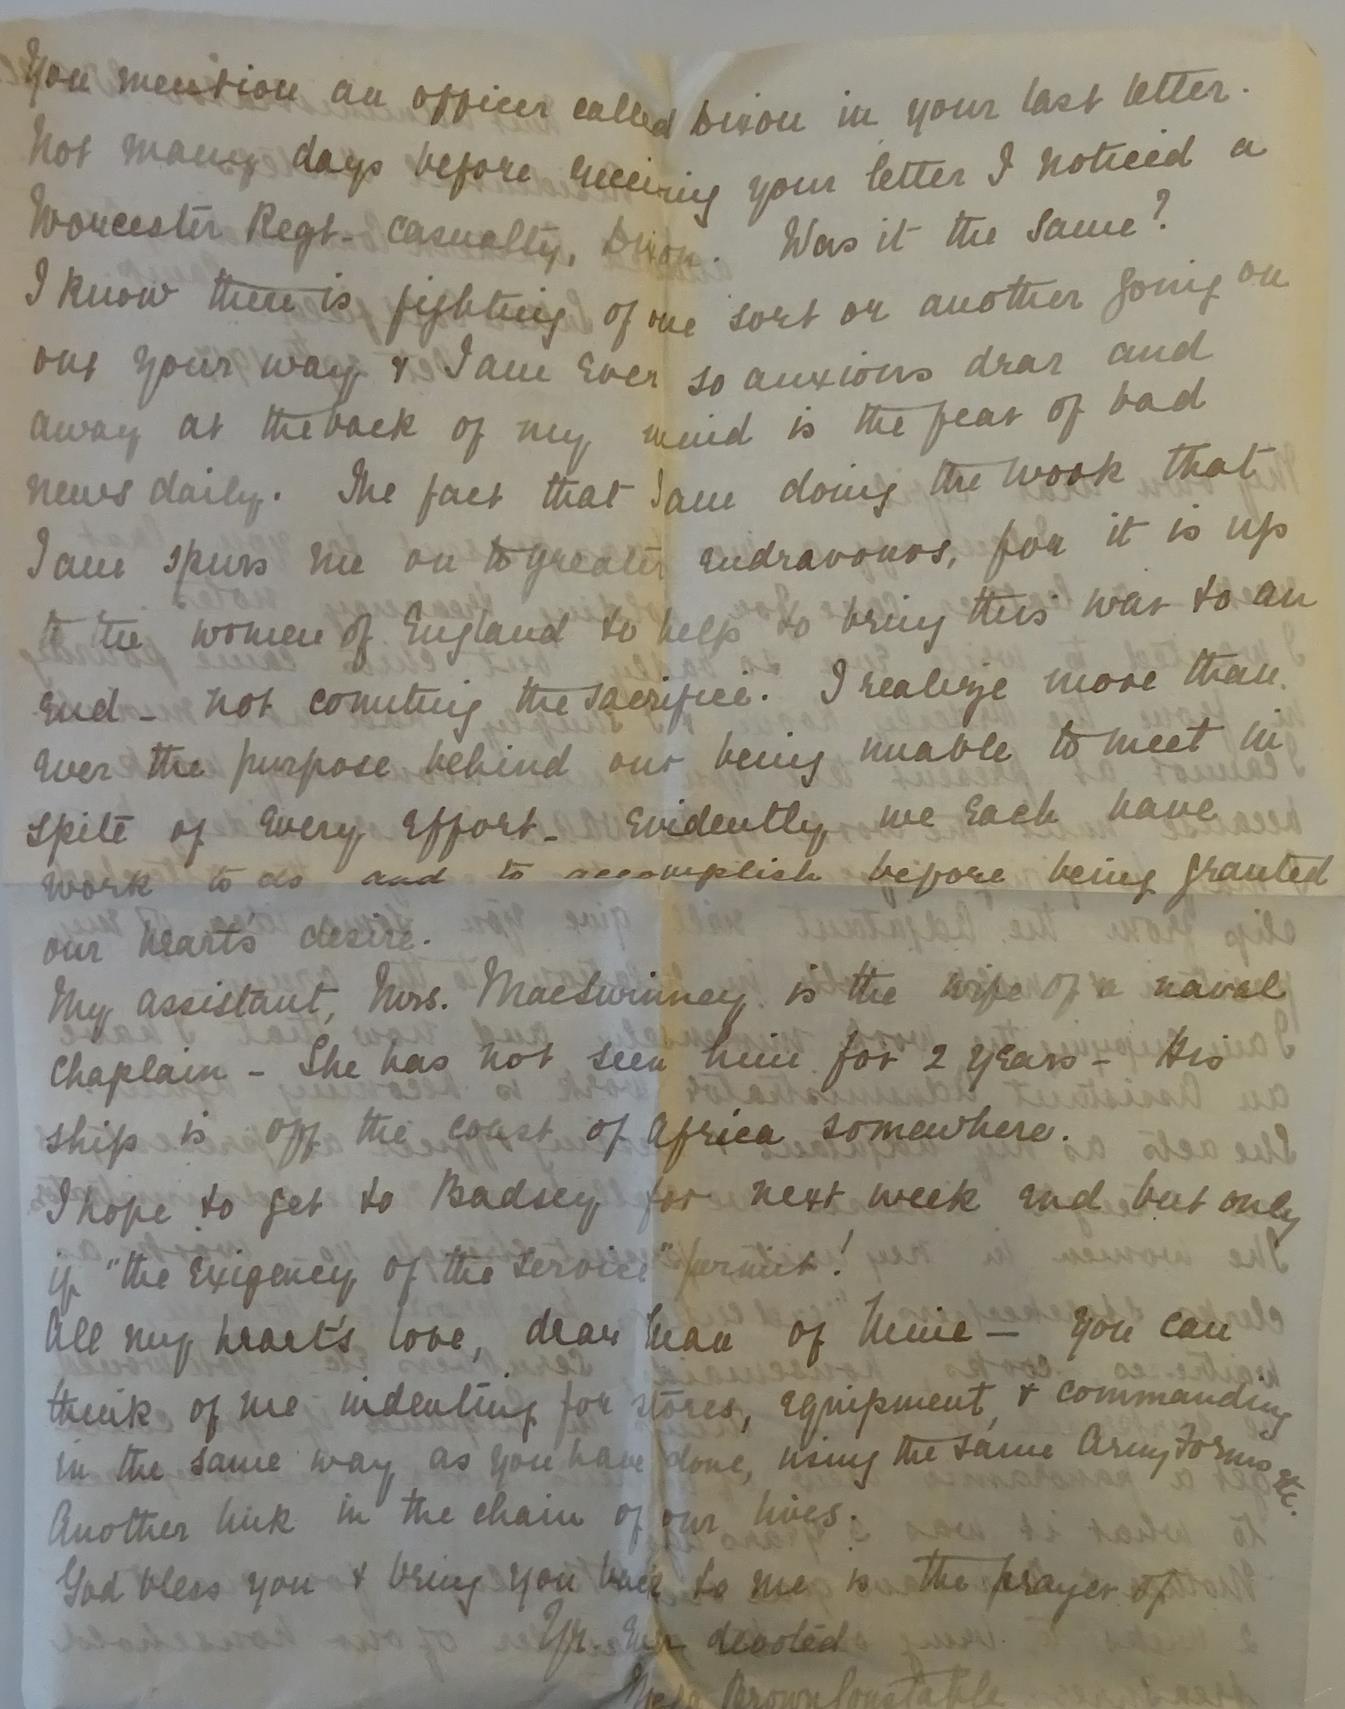 You mention an officer called Dixon in your last letter.
Not many days before receiving your letter I noticed a
Worcester Regt. casualty, Dixon. Was it the same?
I know there is fighting of one sort or another going on
out your way & I am ever so anxious dear and
away at the back of my mind is the fear of bad
news daily. The fact that I am doing the work that
I am spurs me on to greater endeavours, for it is up
to the women of England to help to bring this war to an
end - not counting the sacrifice. I realize more than
ever the purpose behind our being unable to meet in
spite of every effort - Evidently we each have
work to do and to accomplish before being granted
our hearts desire.
My assistant, Mrs. MacSwinney is the wife of a naval
Chaplain - She has not seen him for 2 years - His
ship is off the coast of Africa somewhere.
I hope to get to Badsey for next week end but only
if "the exigency of the service" permit!
All my heart's love, dear man of mine - You can
think of me indenting for stores, equipment, & commanding
in the same way as you have done, using the same Army Forms etc.
Another link in the chain of our lives.
God bless you & bring you back to me is the prayer of
Yr. Ever devoted
Brown Constable